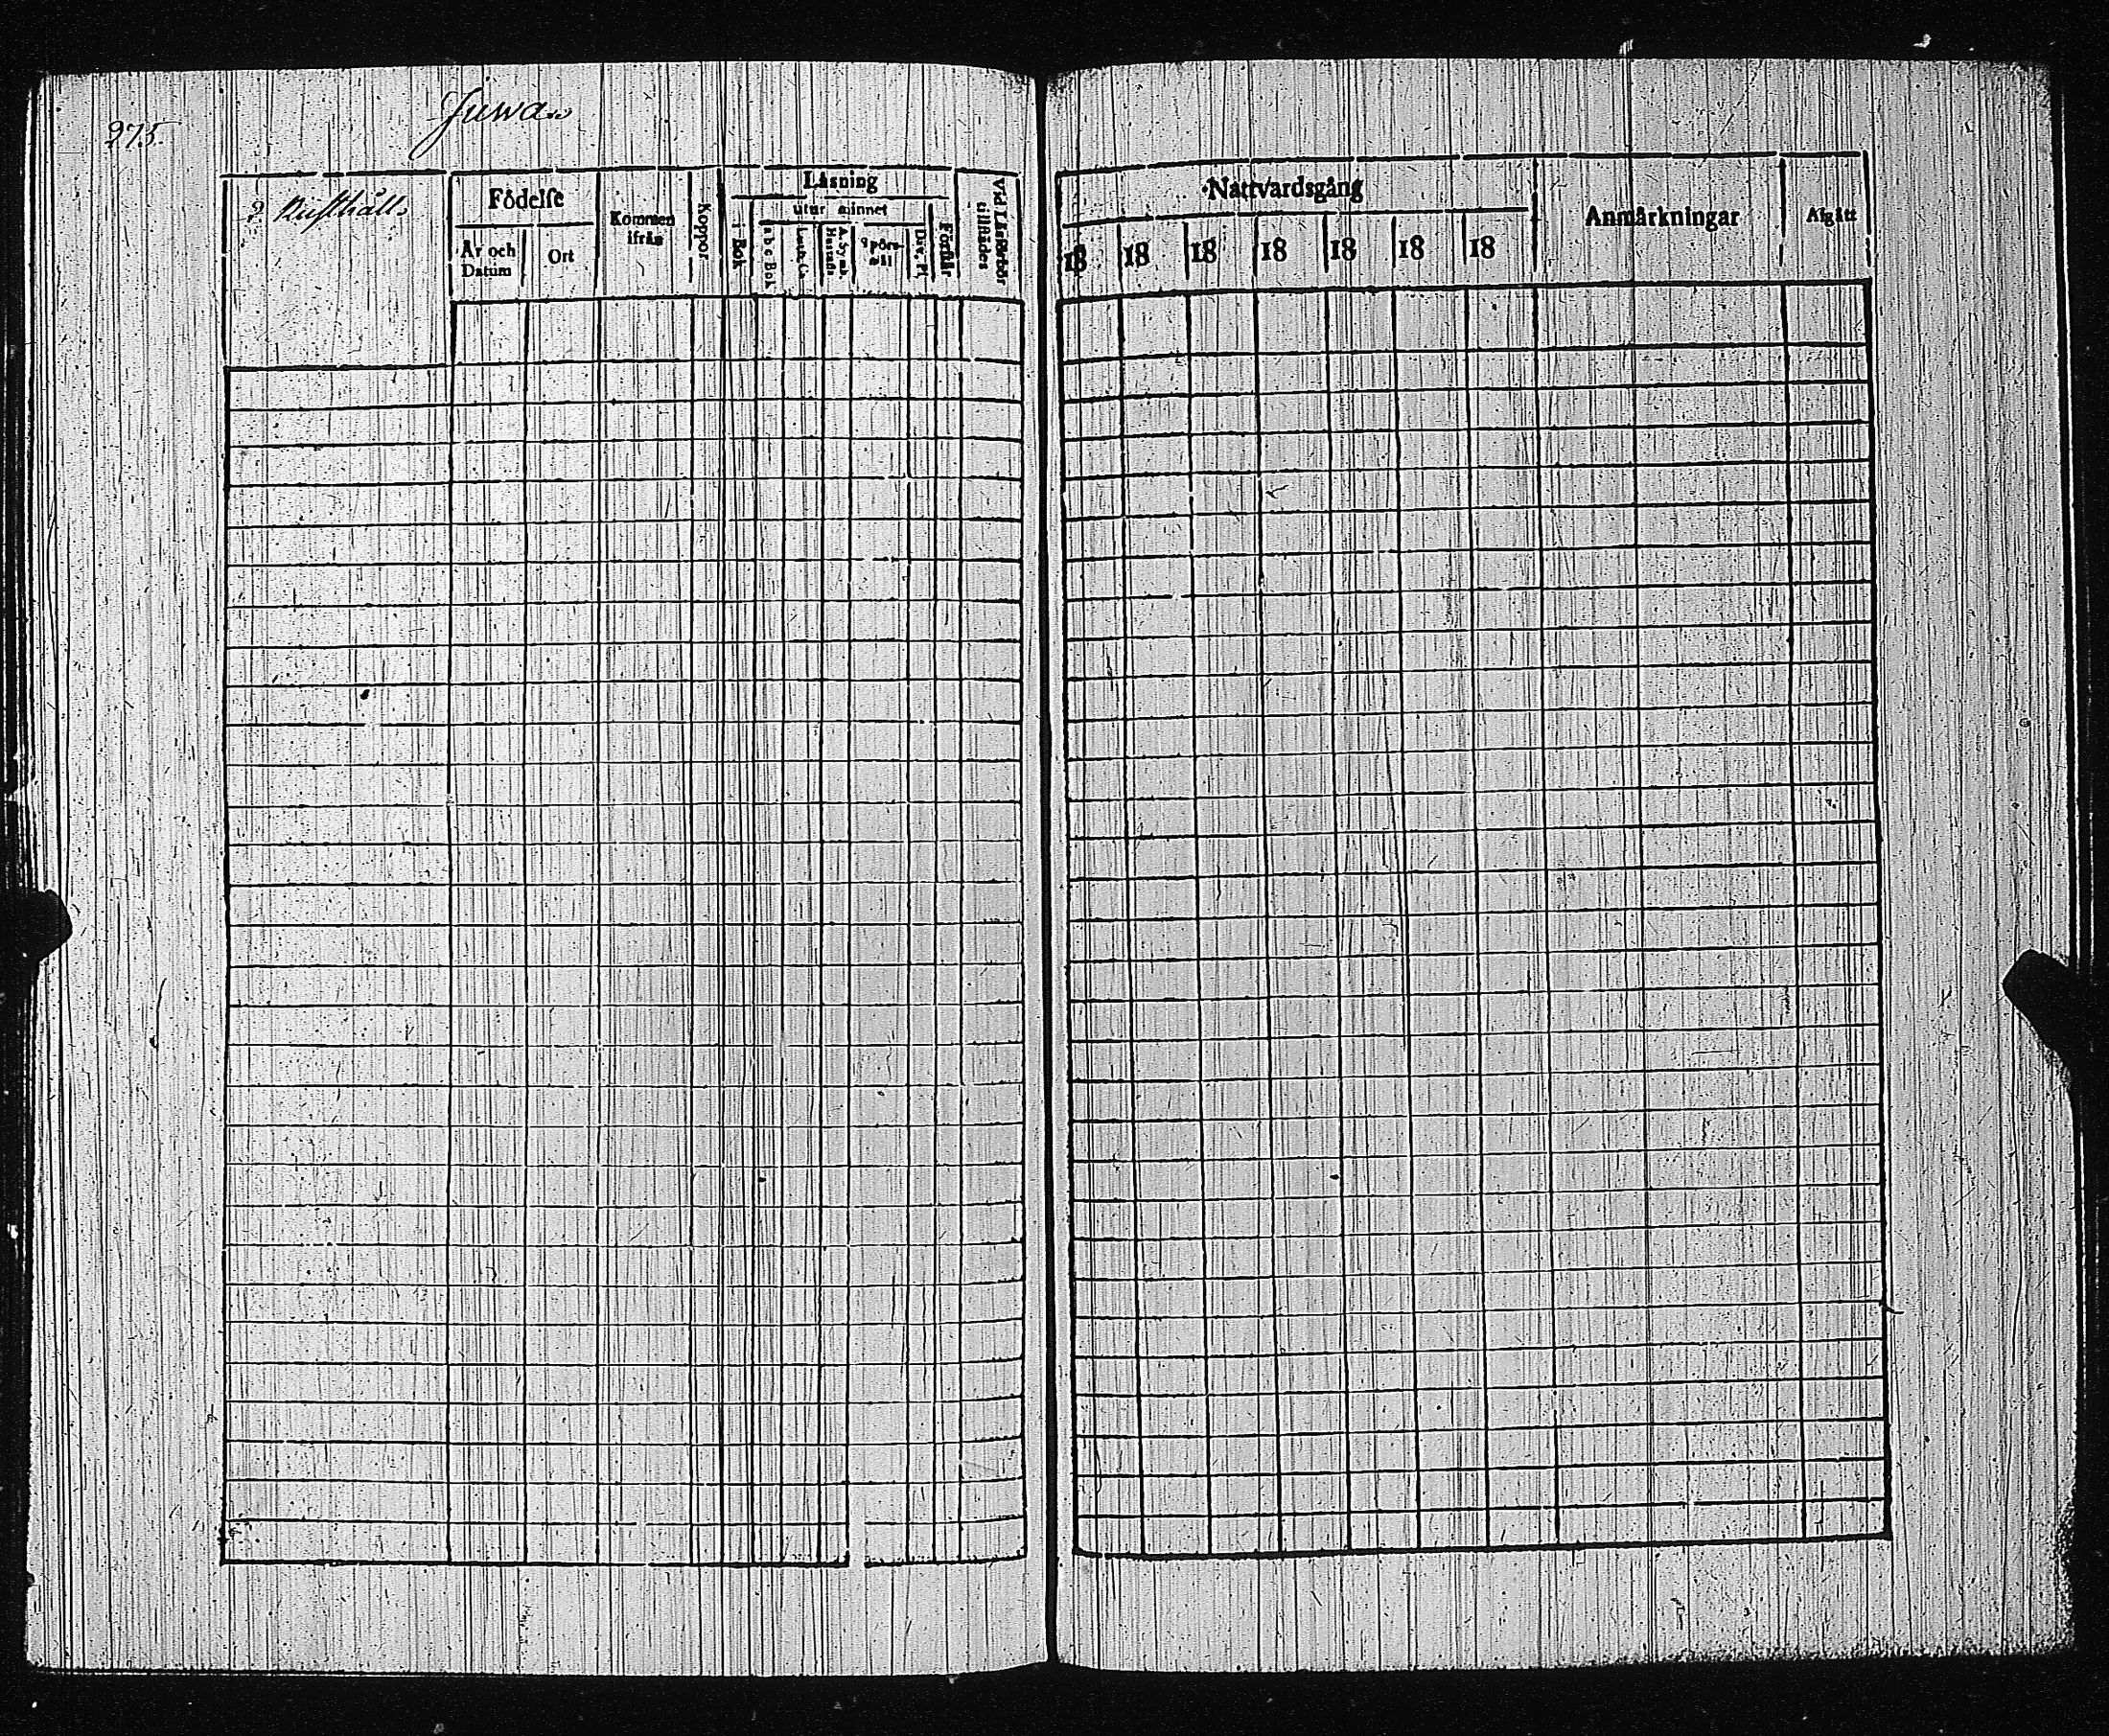 275.
Juwa
2 Rusthåll
Födelse
År och Datum
Ort
Kommen ifrån
Koppor
Läsning
i Bok
utur minnet
a b c Bok
Luth. C.
Hustafl.
A. Symb.
Spörsmål
Dav. Ps.
Förstår
Vid Läsförhör tillstädes
Nattvardsgång
18 18 18 18 18 18 18
Anmärkningar
Afgått